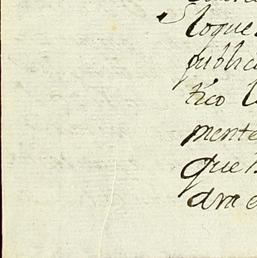 loque
publica
tico l
mente
que
dra e